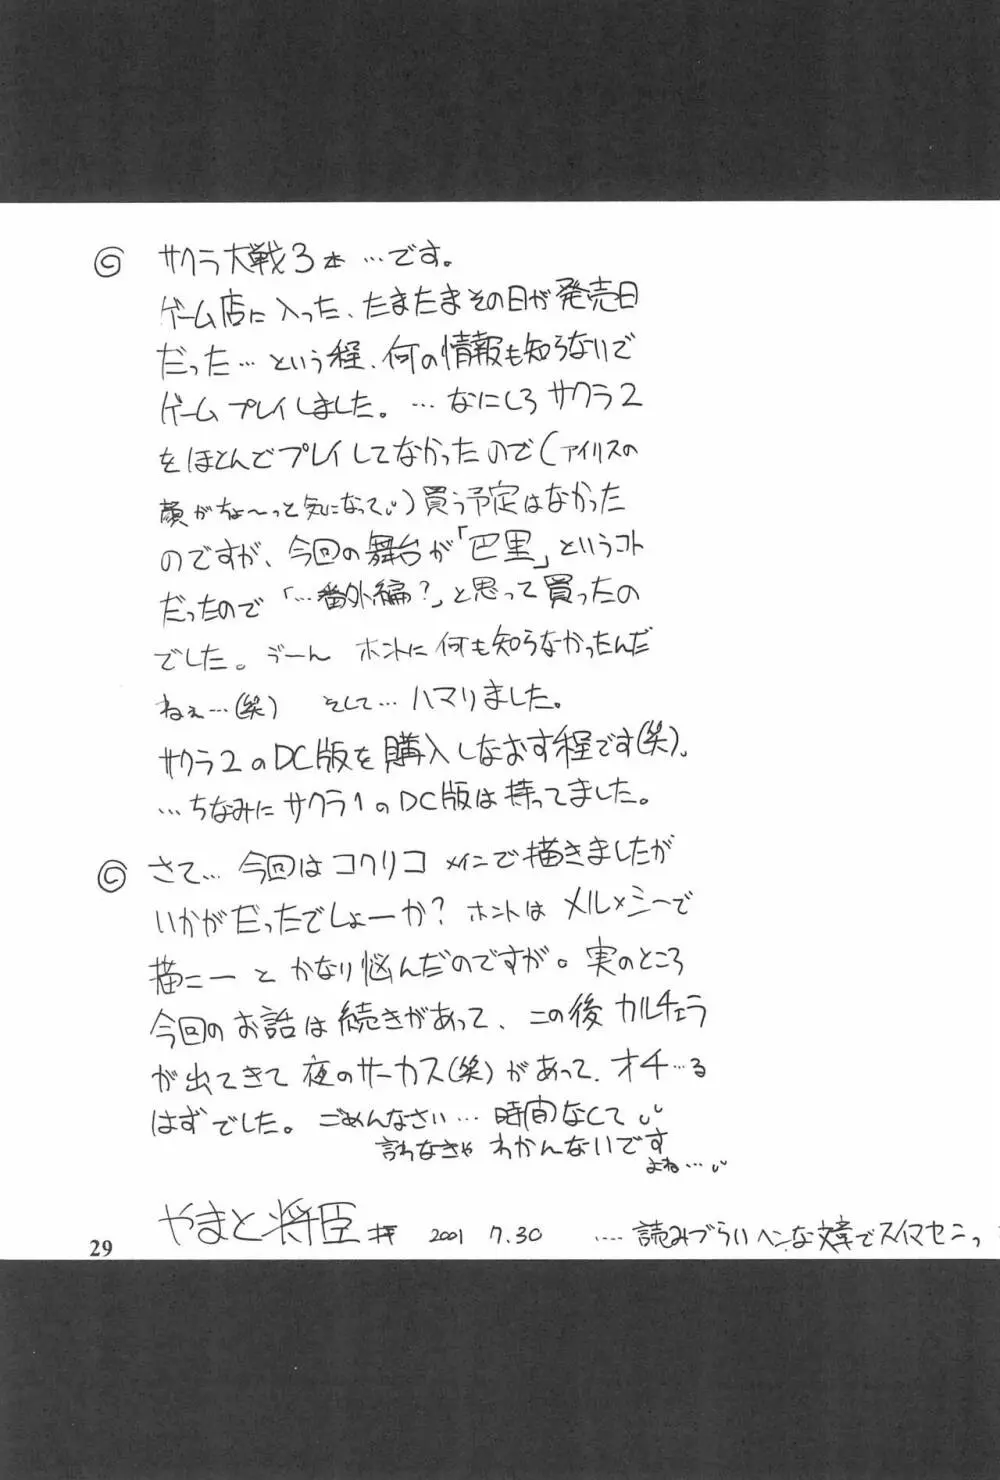 ◎ サクラ大戦3本…です。
ゲーム店に入った、たまたまその日が発売日
だった…という程、何の情報も知らないで
ゲームプレイしました。…なにしろサクラ2
をほとんどプレイしてなかったので(アイリスの
顔がちょ〜っと気になって)買う予定はなかった
のですが、今回の舞台が「巴里」というコト
だったので「…番外編?」と思って買ったの
でした。うーん ホントに何も知らなかったんだ
ねぇ…(笑) そして…ハマりました。
サクラ2のDC版を購入しなおす程です(笑)。
…ちなみにサクラ1のDC版は持ってました。
◎ さて…今回はコクリコメインで描きましたが
いかがだったでしょーか? ホントはメル×シーで
描こーとかなり悩んだのですが。実のところ
今回のお話は続きがあって、この後カルチェラ
が出てきて夜のサーカス(笑)があって、オチ…る
はずでした。ごめんなさい…時間なくて
言わなきゃわかんないです
よね…
やまと将臣 拝 2001 7.30 ….読みづらいヘンな文章でスイマセンっ
29